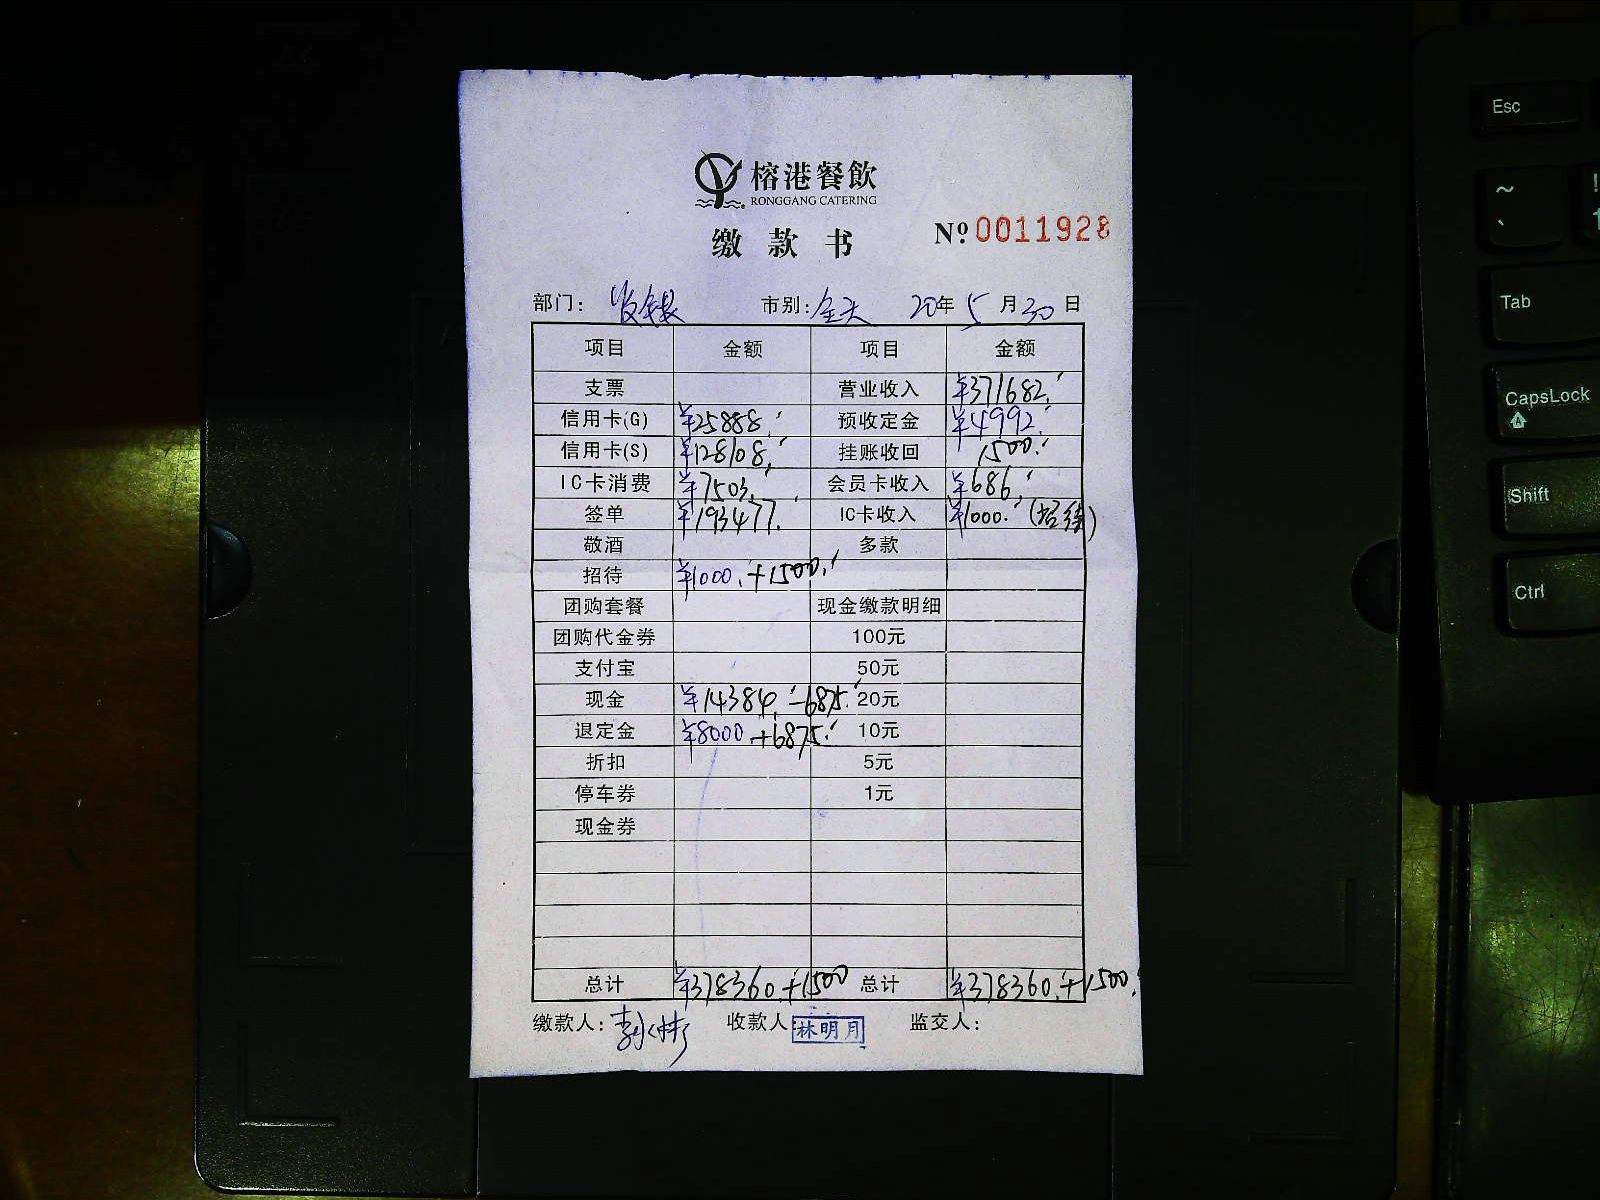 榕港餐飲
RONGGANG CATERING
缴款书 Nº 0011928
部门: 收银 市别: 全天 20年 5月 30日
项目 金额 项目 金额
支票 营业收入 ¥371682.
信用卡(G) ¥25888. 预收定金 ¥4992.
信用卡(S) ¥128108. 挂账收回 1500.
IC卡消费 ¥7503. 会员卡收入 ¥686.
签单 ¥193477. IC卡收入 ¥1000. (招待)
敬酒 多款
招待 ¥1000.+1500.
团购套餐 现金缴款明细
团购代金券 100元
支付宝 50元
现金 ¥14384.-6875. 20元
退定金 ¥8000+6875. 10元
折扣 5元
停车券 1元
现金券
总计 ¥378360.+1500 总计 ¥378360.+1500.
缴款人: 收款人: 林明月 监交人:
Esc
~
`
!
1
Tab
CapsLock
A
Shift
Ctrl